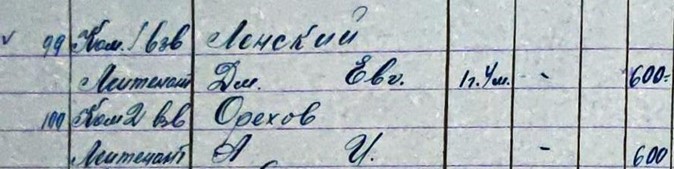 ✓ 99 Ком. 1 взв Ленский
Лейтенант Дм. Евг. 1г. 4м. - 600-
100 Ком 2 вв Орехов
Лейтенант А И. - 600